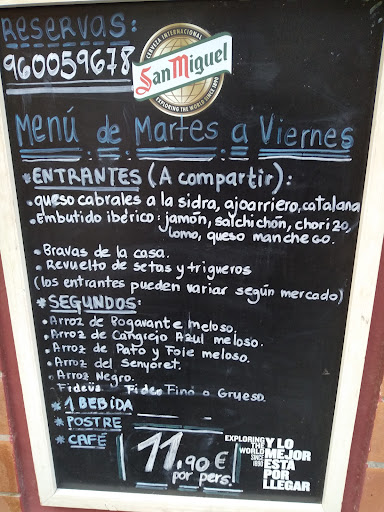 RESERVAS:
960059678
CERVEZA INTERNACIONAL
San Miguel
EXPLORING THE WORLD SINCE 1890
Menú de Martes a Viernes
* ENTRANTES (A compartir):
• queso cabrales a la sidra, ajoarriero, catalana
• Embutido ibérico: jamón, salchichón, chorizo,
lomo, queso manchego.
• Bravas de la casa.
• Revuelto de setas y trigueros
(los entrantes pueden variar según mercado)
* SEGUNDOS:
• Arroz de Bogavante meloso.
• Arroz de Cangrejo Azul meloso.
• Arroz de Pato y Foie meloso.
• Arroz del Senyoret.
• Arroz Negro.
• Fideüa Fideo Fino o Grueso.
* 1 BEBIDA
* POSTRE
* CAFÉ
11,90€
por pers.
EXPLORING
THE
WORLD
SINCE
1890
Y LO
MEJOR
ESTÁ
POR
LLEGAR